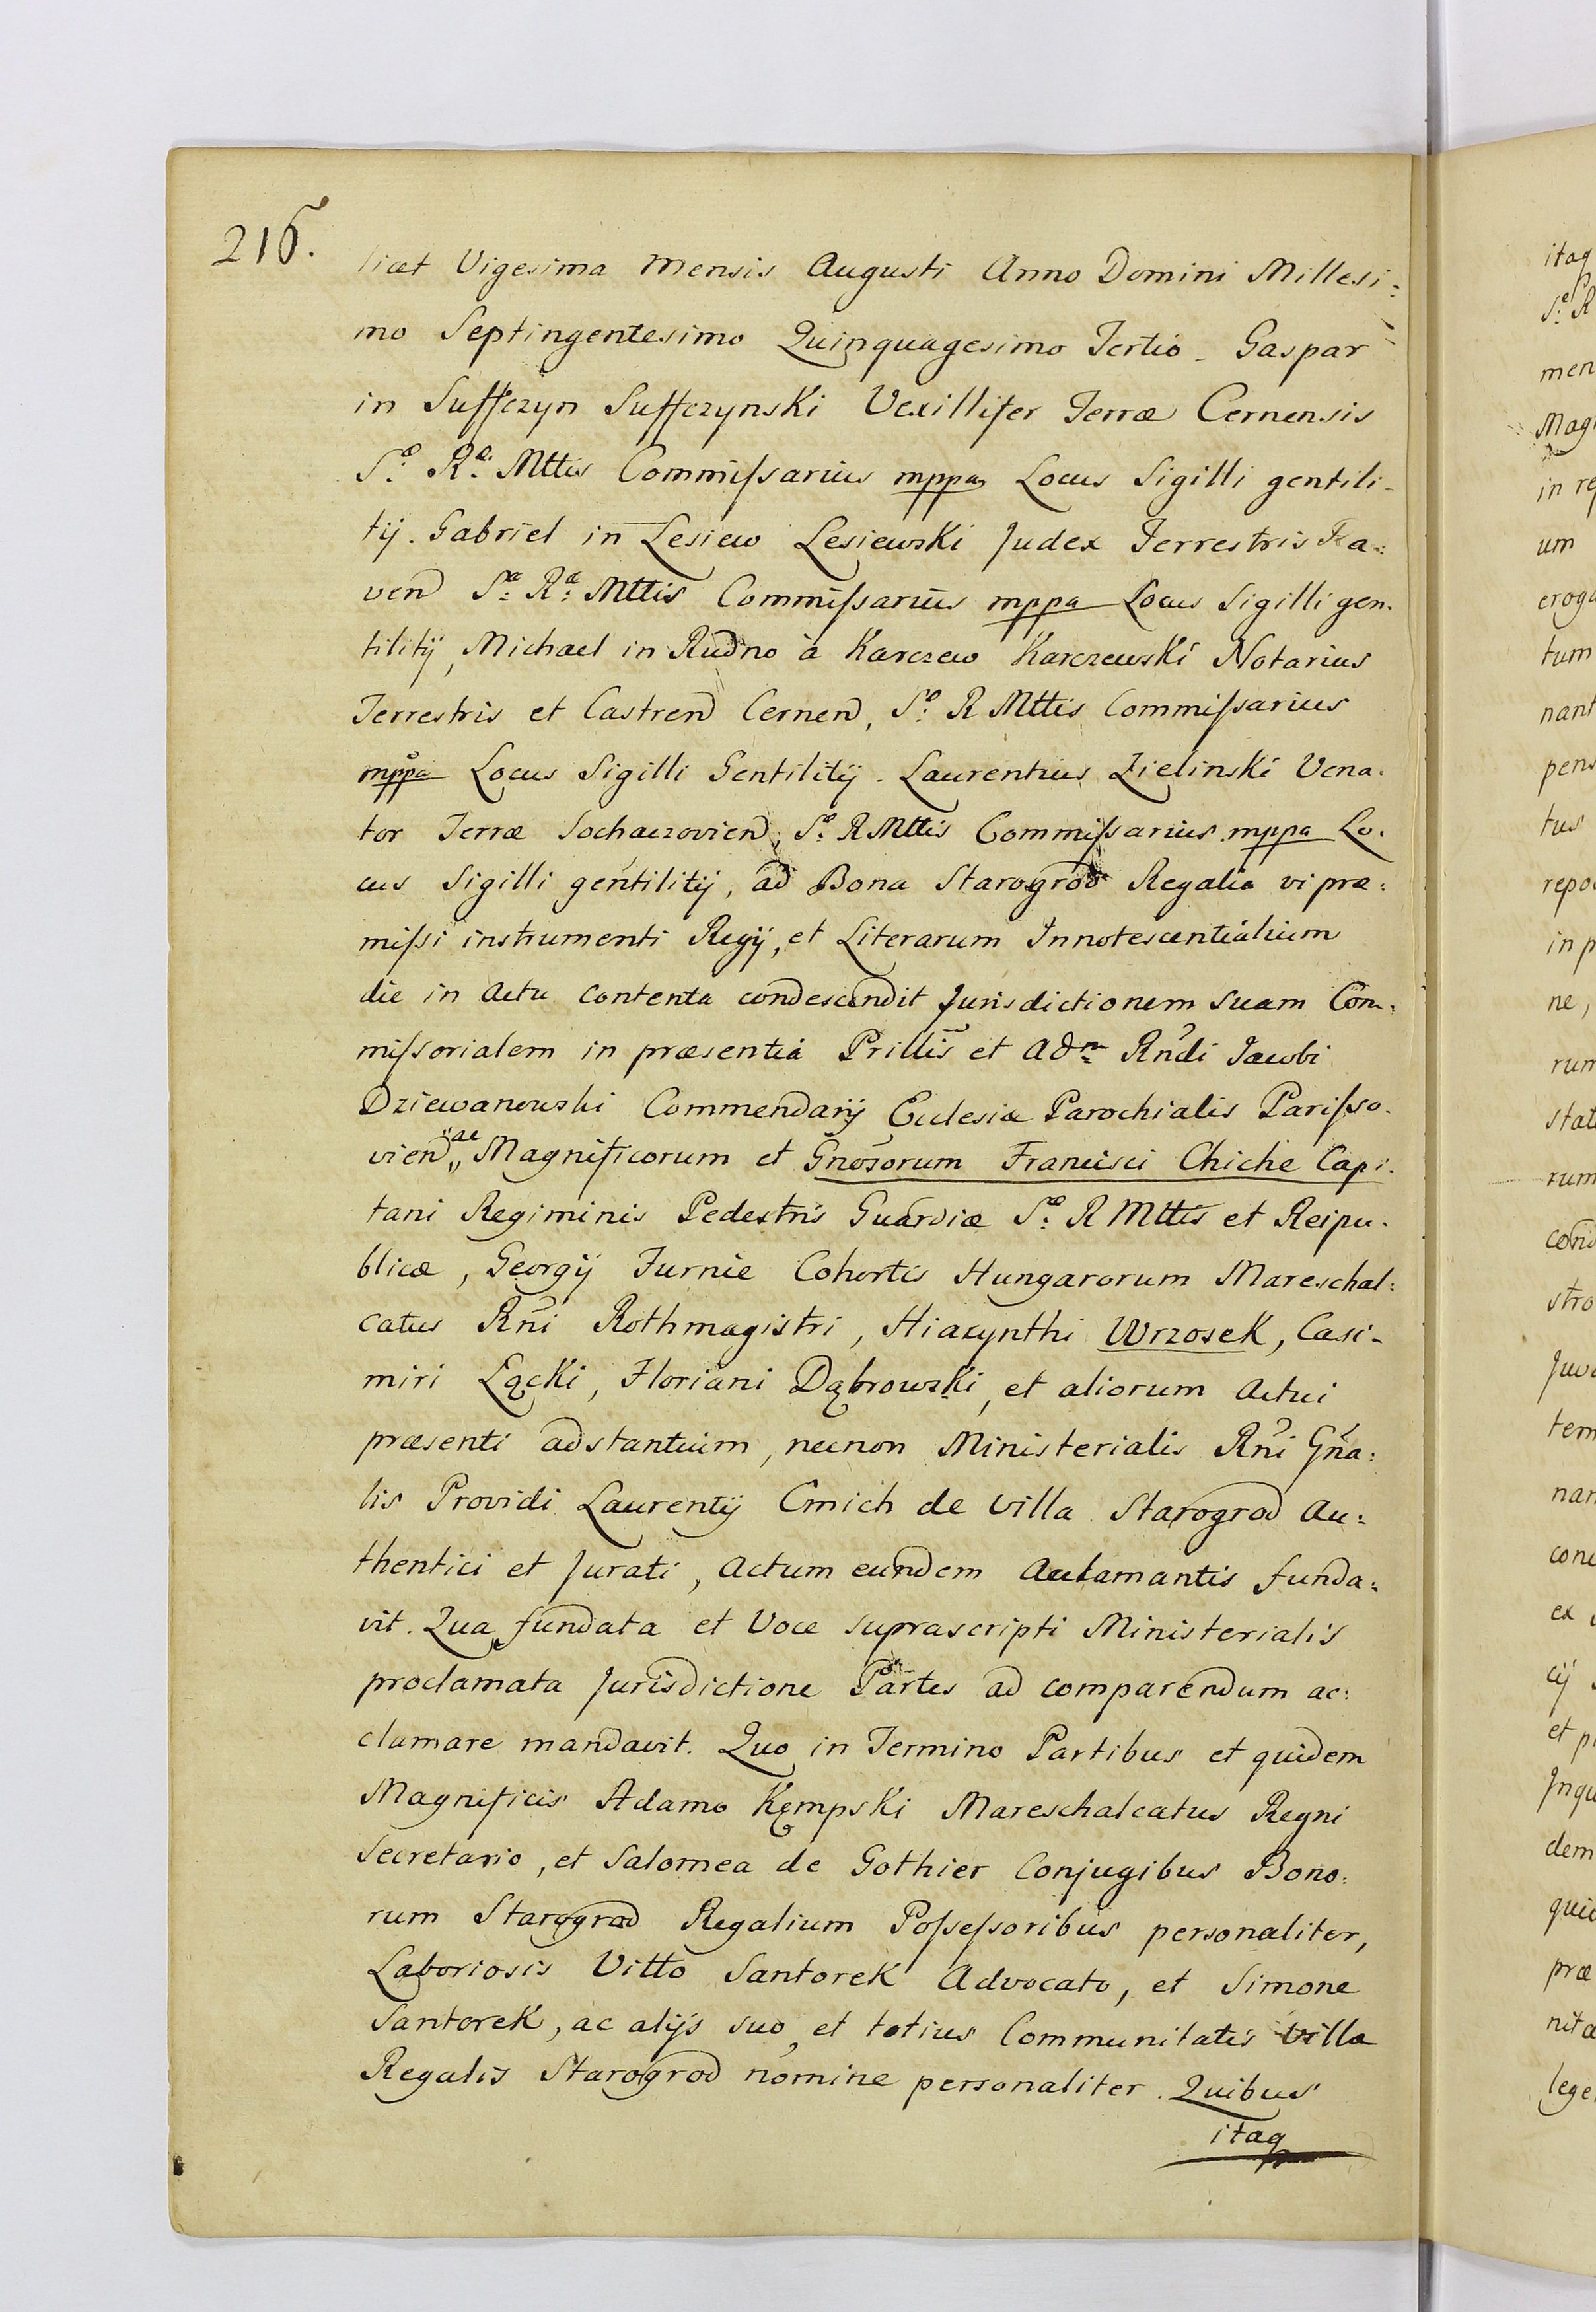 216.
licet Vigesima Mensis Augusti Anno Domini Millesi:
mo Septingentesimo Quinquagesimo Tertio. Gaspar
in Suffczyn Suffczynski Vexillifer Terræ Cernensis
S:æ R:æ Mttis Commissarius mppa Locus Sigilli gentili-
tij. Gabriel in Lesiew Lesiewski Judex Terrestris Ra:
ven S:æ R:æ Mttis Commissarius mppa Locus Sigilli gen.
tilitij, Michael in Rudno à Karczew Karczewski Notarius
Terrestris et Castren Cernen, S:æ R Mttis Commissarius
mppa Locus Sigilli Gentilitij. Laurentius Zielinski Vena.
tor Terræ Sochaczovien, S:æ R Mttis Commissarius mppa Lo.
cus Sigilli gentilitij, ad Bona Starogrod Regalia vi præ:
missi instrumenti Regij, et Literarum Innotescentialium
die in Actu contenta condescendit Jurisdictionem suam Com:
missorialem in præsentia Prillis et Adm Rndi Jacobi
Dziewanowski Commendarij Ecclesiæ Parochialis Parisso.
vien ac Magnificorum et Gnosorum Francisci Chiche Capi.
tani Regiminis Pedestris Guardiæ S:æ R Mttis et Reipu.
blicæ, Georgij Furnie Cohortis Hungarorum Mareschal:
catus Rni Rothmagistri, Hiacynthi Wrzosek, Casi-
miri Łącki, Floriani Dąbrowski, et aliorum Actui
præsenti adstantium, necnon Ministerialis Rni Gna:
lis Providi Laurentij Cmich de Villa Starogrod Au:
thentici et Jurati, Actum eundem Acclamantis funda:
vit. Qua fundata et Voce suprascripti Ministerialis
proclamata Jurisdictione Partes ad comparendum ac:
clamare mandavit. Quo in Termino Partibus et quidem
Magnificis Adamo Kępski Mareschalcatus Regni
Secretario, et Salomea de Gothier Conjugibus Bono:
rum Starogrod Regalium Possessoribus personaliter,
Laboriosis Vitto Santorek Advocato, et Simone
Santorek, ac alijs suo, et totius Communitatis Villæ
Regalis Starogrod nomine personaliter. Quibus
itaq
itaq
S:e R
men
Mag
in re
um
eroga
tum
nant
pens
tus
repo
in p
ne,
rum
stat
rum
cond
stro
Juv
tem
nan
conc
ex
cij
et p
Inqu
dem
quid
præ
nitæ
lege